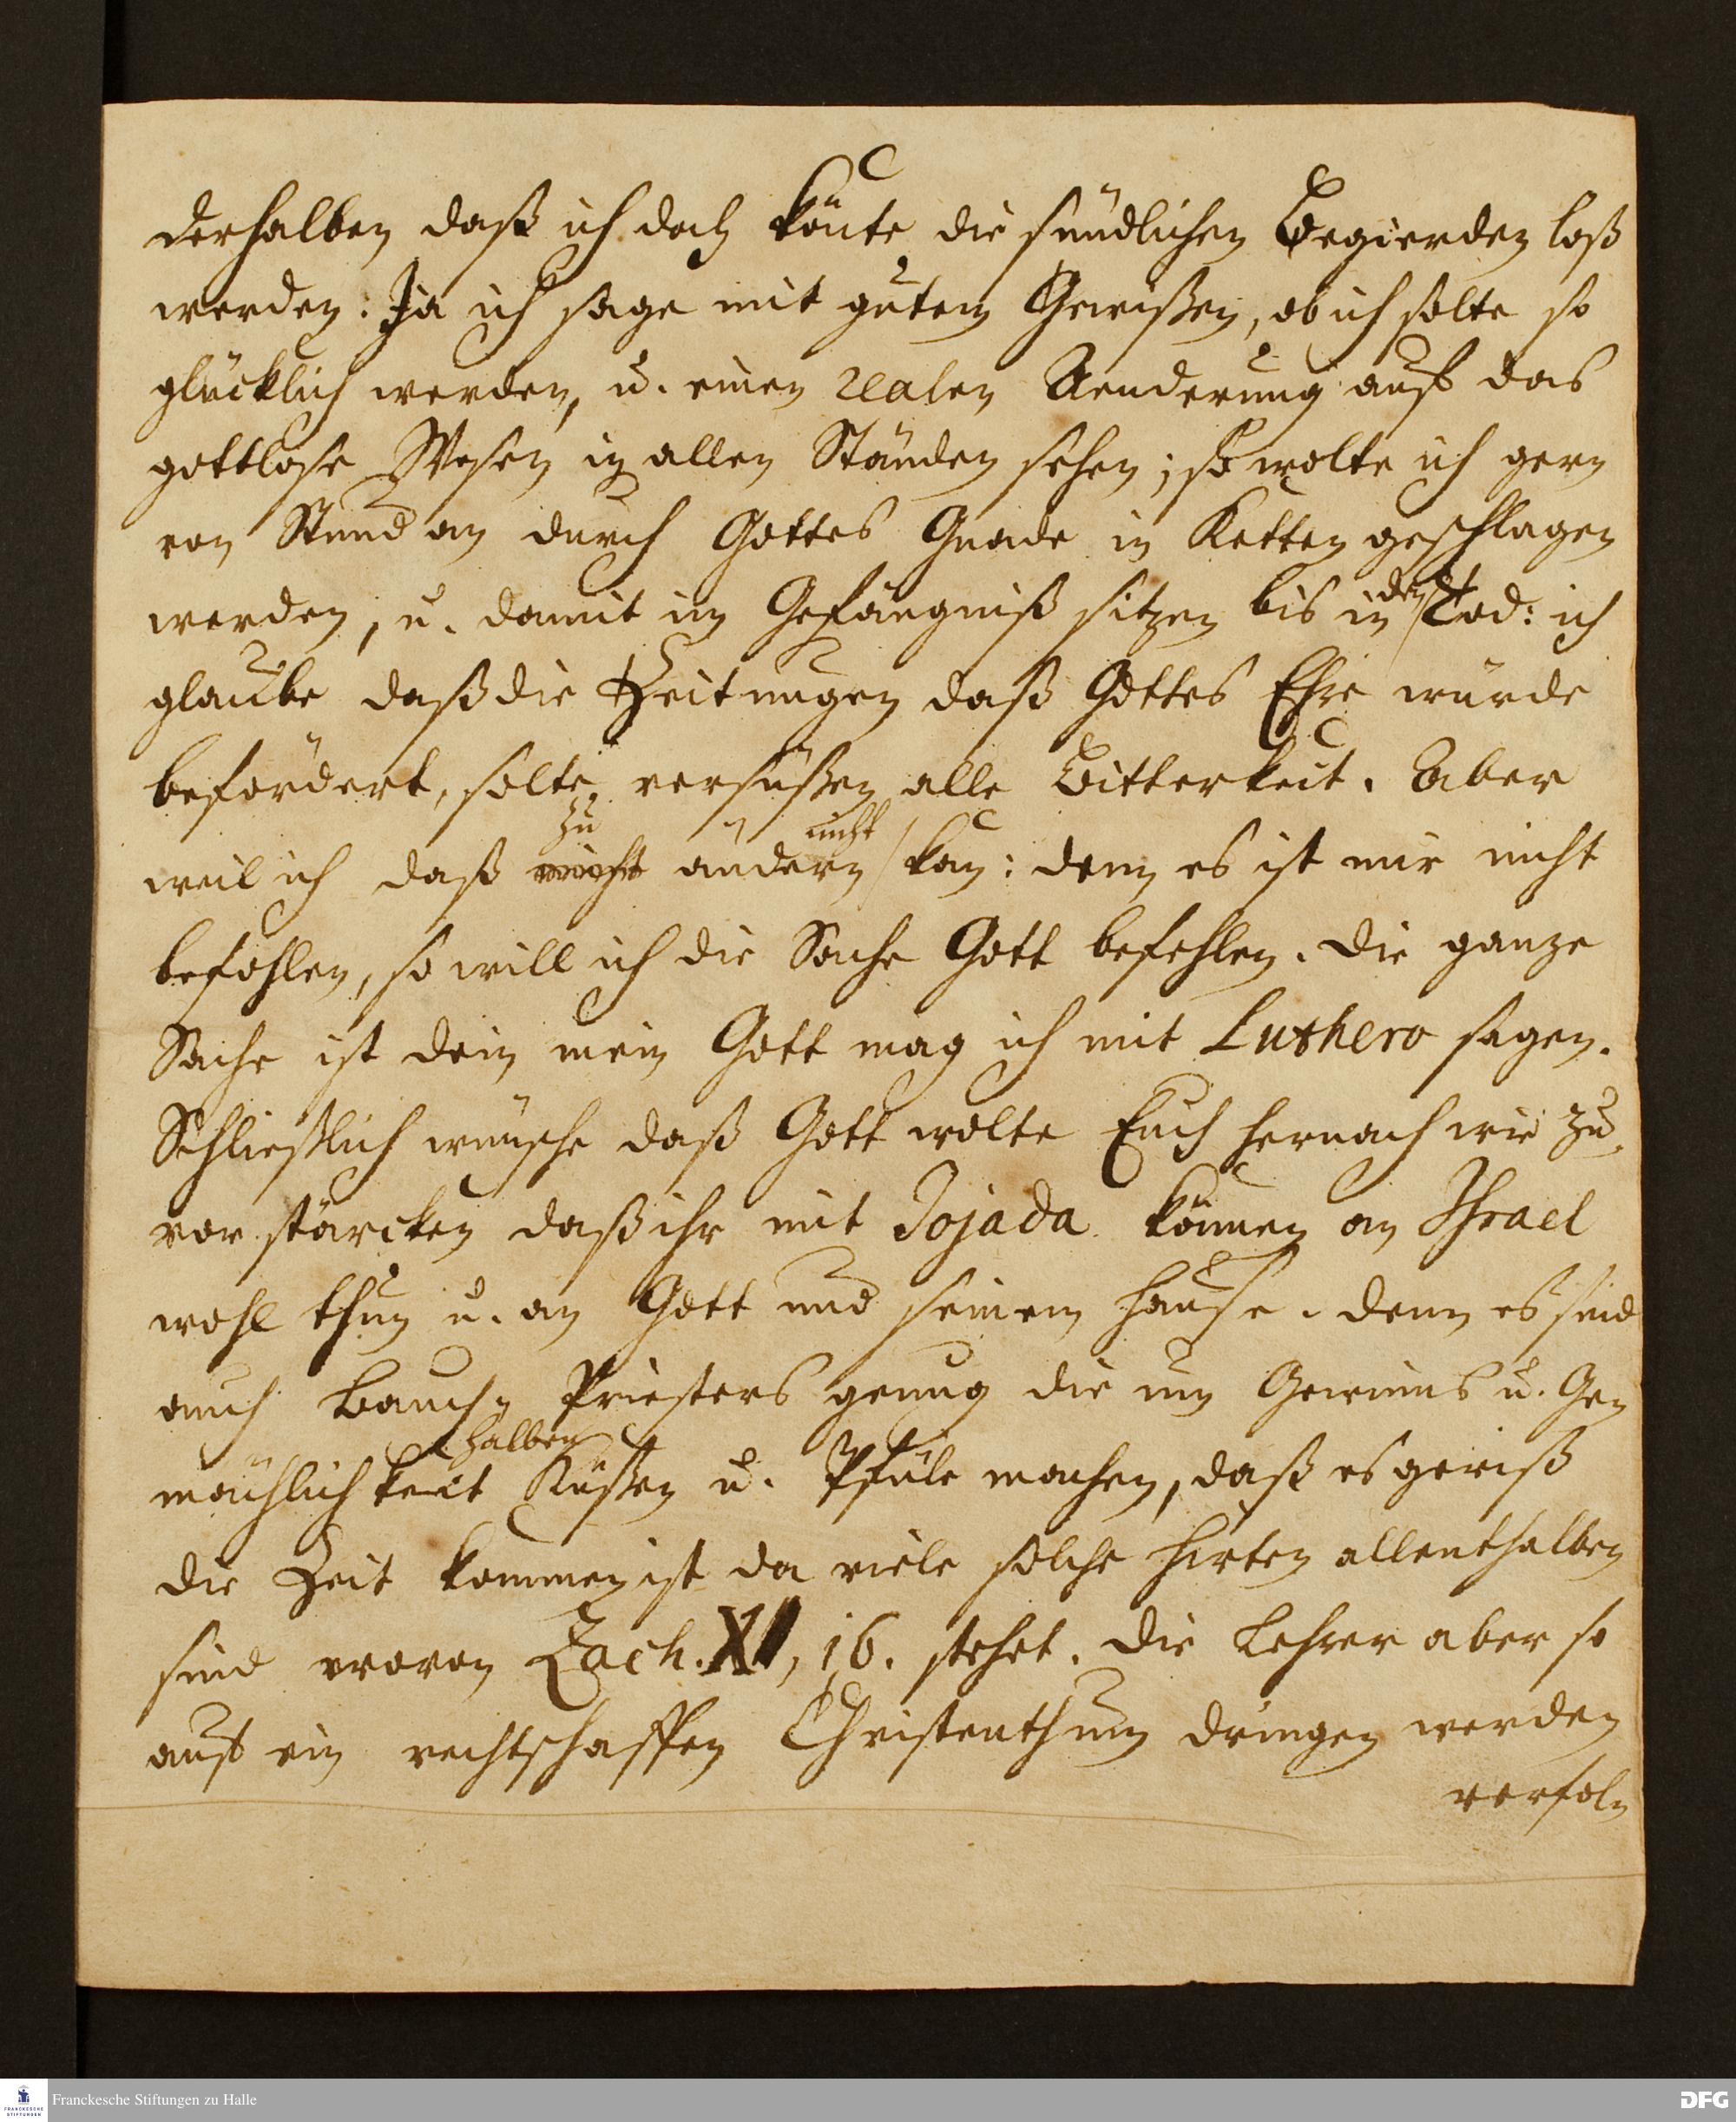 derhalben daß ich doch könte die sündlichen Begierden loß
werden: Ja ich sage mit gutem Gewißen, ob ich solte so
glücklich werden, u. einen realen Aenderung auf das
gottlose Wesen in allen Ständen sehen; so wolte ich gern
von Stund an durch Gottes Gnade in Ketten geschlagen
werden, u. damit im Gefängniß sitzen bis in den Tod: ich
glaube daß die Zeitungen daß Gottes Ehre würde
befördert, solte versüßen alle Bitterkeit. Aber
weil ich daß zu ändern nicht kan: denn es ist mir nicht
befohlen, so will ich die Sache Gott befehlen. Die ganze
Sache ist dein mein Gott mag ich mit Luthero sagen.
Schließlich wünsche daß Gott wolte Euch hernach wie zu
vor stärcken daß ihr mit Jojada können an Israel
wohl thun u. an Gott und seinem Hause. denn es sind
auch Bauch- Priesters genug die um Gewinns u. Ge-
mächlichkeit halben Küßen u. Pfüle machen, daß es gewiß
die Zeit kommen ist da viele solche Hirten allenthalben
sind wovon Zach. XI, 16. stehet. Die Lehrer aber so
auf ein rechtschaffen Christenthum dringen werden
verfol-
Franckesche Stiftungen zu Halle
DFG
FRANCKESCHE
STIFTUNGEN